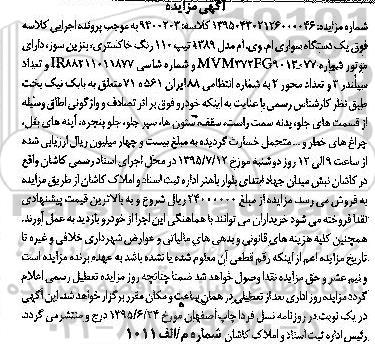 آگهی مزایده
شماره مزایده: ۱۳۹۵۰۴۳۰۲۱۲۶۰۰۰۰۴۶ کلاسه: ۹۴۰۰۲۰۳ به موجب پرونده اجرایی کلاسه
فوق یک دستگاه سواری ام وی ام مدل ۱۳۸۹ تیپ ۱۱۰ رنگ خاکستری، بنزین سوز، دارای
موتور شماره MVM۳۷۲FG۹۰۱۳۰۷۷ و شماره شاسی IR۸۸۲۱۱۰۱۱۸۷۷ و تعداد
سیلندر ۳ و تعداد محور ۲ به شماره انتظامی ۸۸ ایران ۵۶۱ ه ۷۱ متعلق به بابک نیک بخت
طبق نظر کارشناس رسمی با عنایت به اینکه خودرو فوق بر اثر تصادف و واژگونی اطاق وسیله
از قسمت های جلو، بدنه سمت راست، سقف، ستون ها، سپر جلو، جلو پنجره، آینه های بغل،
چراغ های خطر و ... متحمل خسارت گردیده به مبلغ بیست و چهار میلیون ریال ارزیابی شده
از ساعت ۹ الی ۱۲ روز دوشنبه مورخ ۱۳۹۵/۷/۱۲ در محل اجرای اسناد رسمی کاشان واقع
در کاشان نبش میدان جهاد ابتدای بلوار باهنر اداره ثبت اسناد و املاک کاشان از طریق مزایده
به فروش می رسد مزایده از مبلغ ۲۴۰۰۰۰۰۰ ریال شروع و به بالاترین قیمت پیشنهادی
نقدا فروخته می شود خریداران می توانند با هماهنگی این اجرا از خودرو بازدید به عمل آورند.
همچنین کلیه هزینه های قانونی و بدهی های مالیاتی و عوارض شهرداری خلافی و غیره تا
تاریخ مزایده اعم از اینکه رقم قطعی آن معلوم شده یا نشده باشد به عهده برنده مزایده است
و نیم عشر و حق مزایده نقدا وصول خواهد شد ضمنا چنانچه روز مزایده تعطیل رسمی اعلام
گردد مزایده روز اداری بعد از تعطیلی در همان ساعت و مکان مقرر برگزار خواهد شد. این آگهی
در یک نوبت در روزنامه نسل فردا چاپ اصفهان مورخ ۱۳۹۵/۶/۲۴ درج و منتشر می گردد.
رئیس اداره ثبت اسناد و املاک کاشان شماره م/الف ۱۰۱۱